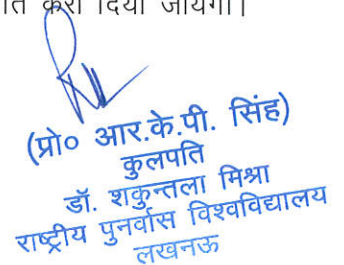 करा दिया जायेगा।
(प्रो० आर.के.पी. सिंह)
कुलपति
डॉ. शकुन्तला मिश्रा
राष्ट्रीय पुनर्वास विश्वविद्यालय
लखनऊ